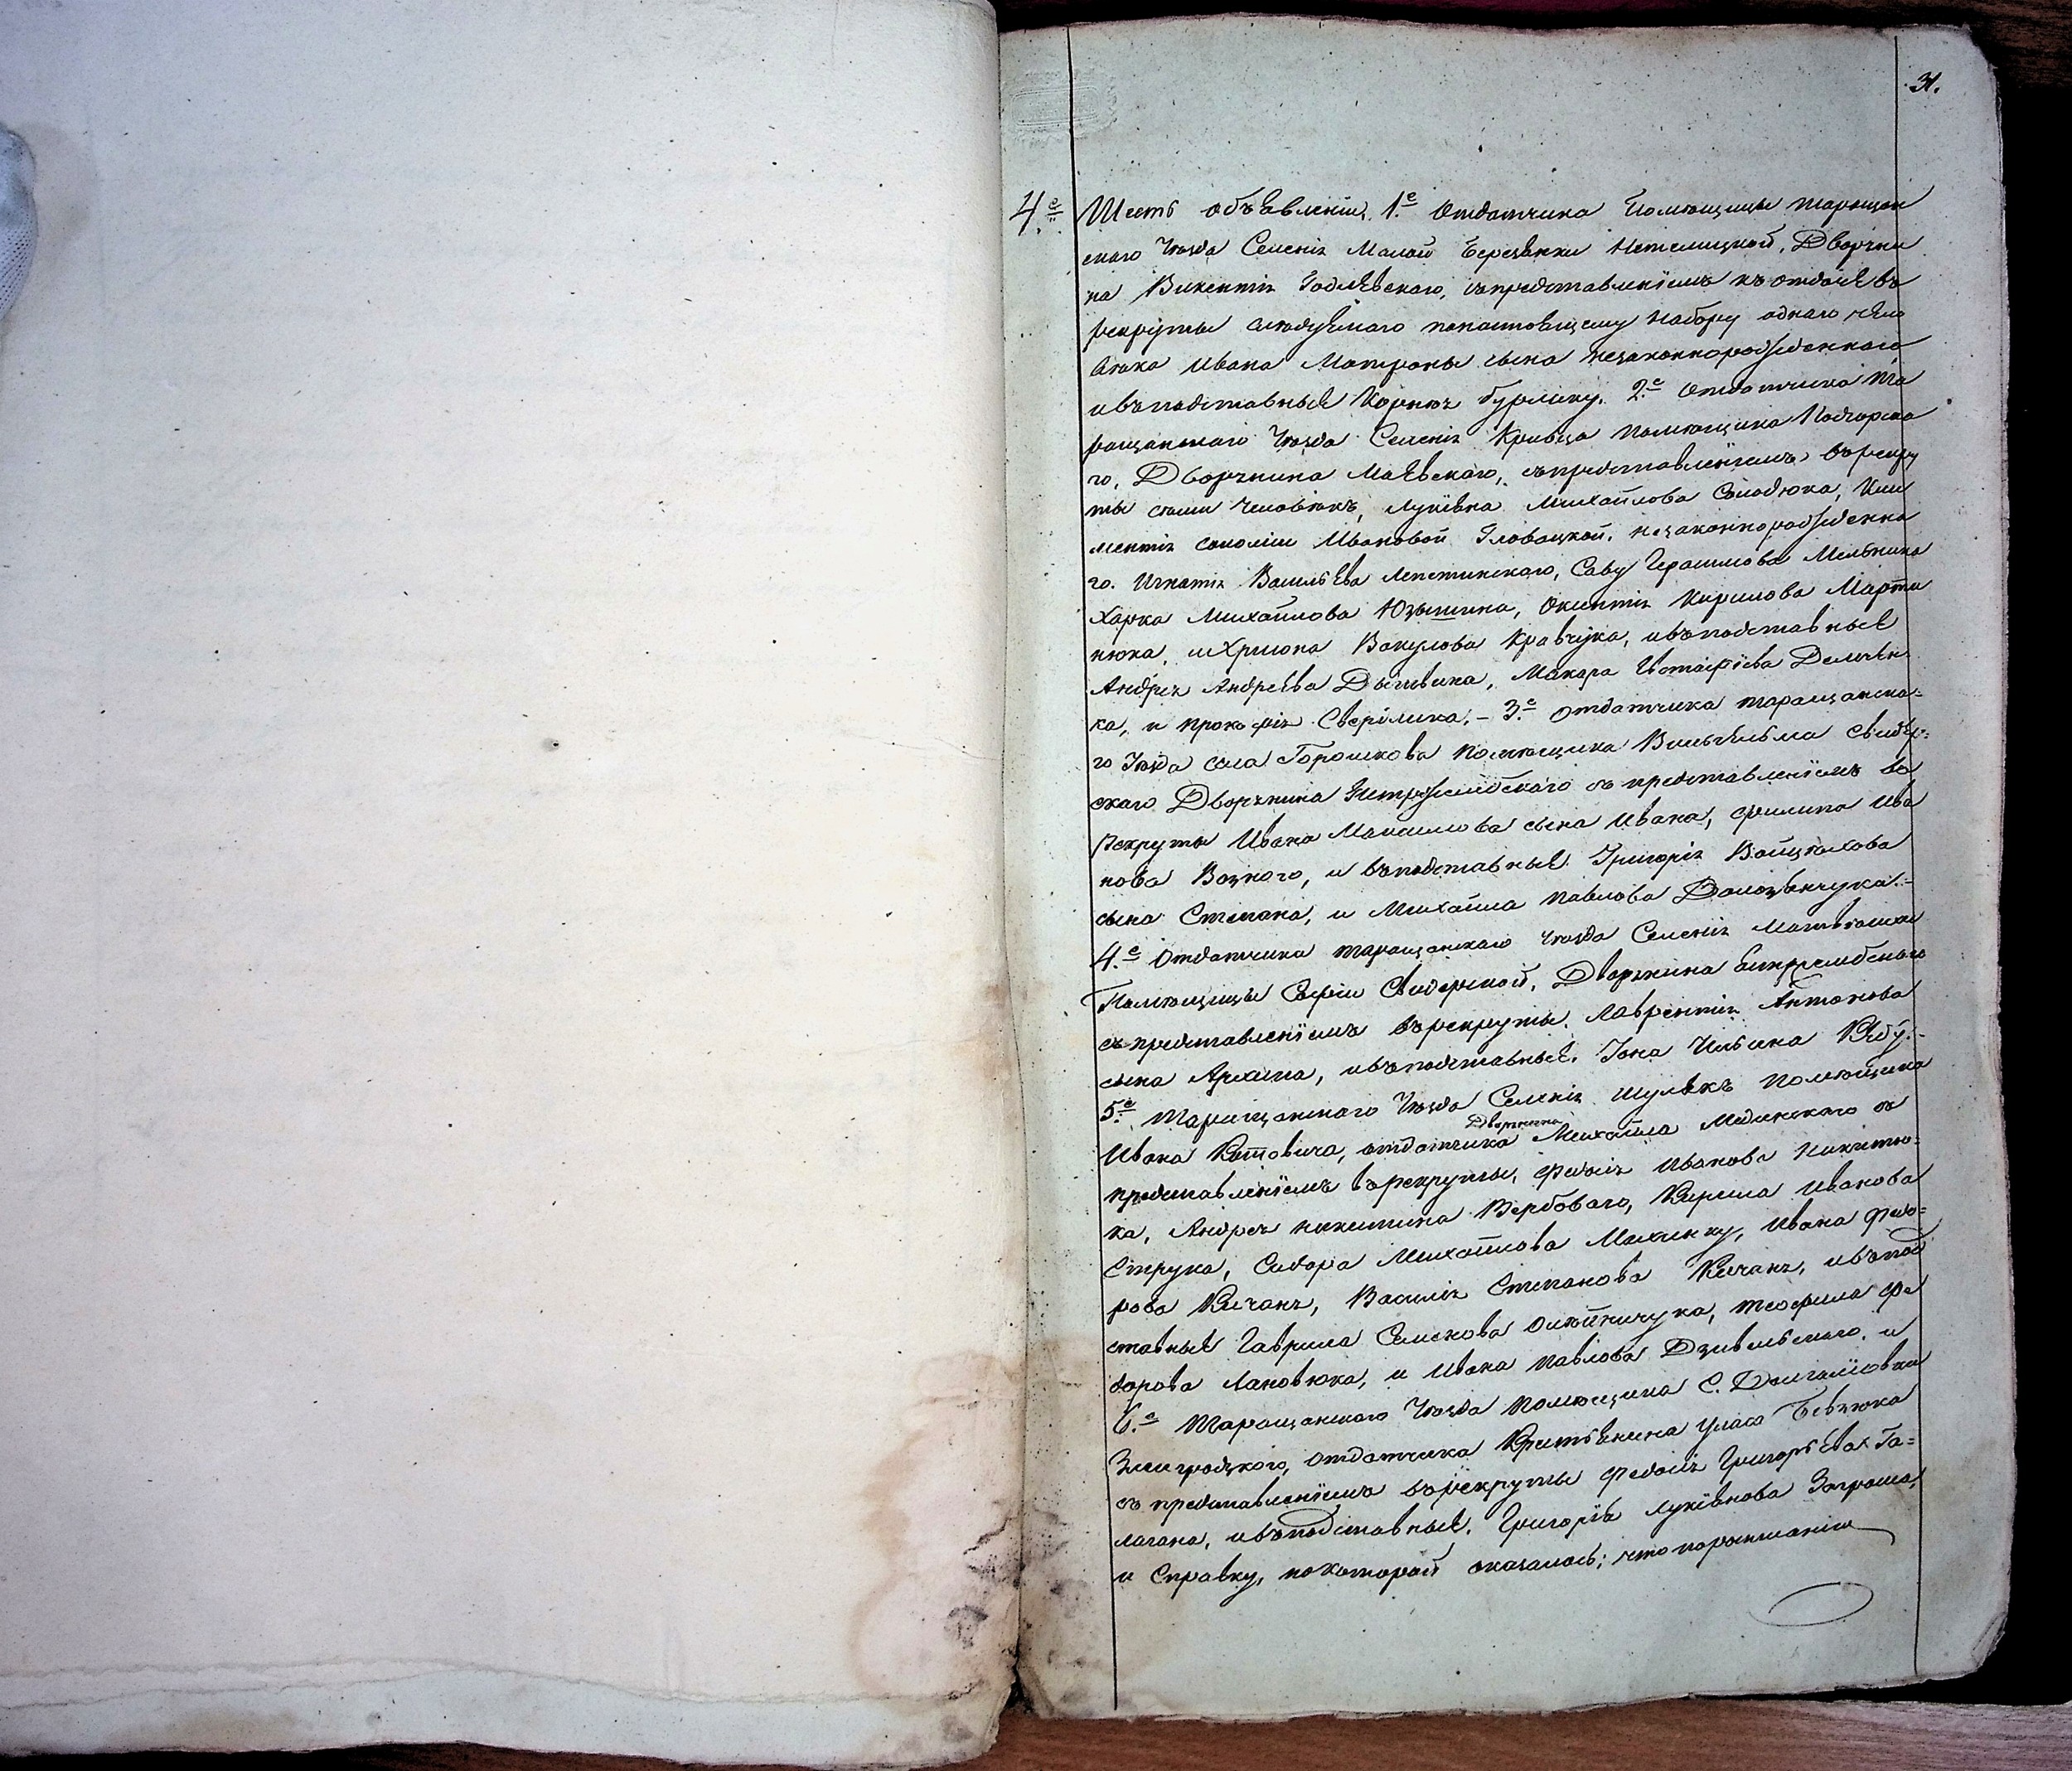 31.
4.е Шесть объявленій, 1.е Отдатчика Помѣщицы Таращан
скаго Уѣзда Селенія Малой Березянки Нетемицкой, Дворяни
на Викентія Годлевскаго, съ представленіемъ къ отдаче въ
рекруты следуемаго по настоящему набору одного чело
века Ивана Матроны сына незаконнорожденнаго
и въ подставные Корнея Бурлаку. 2.е Отдатчика Та
ращанскаго Уѣзда Селенія Кривца помѣщика Подгорска
го, Дворянина Маевскаго, съ представленіемъ въ рекру
ты семи человѣкъ, Лукіяна Михайлова Солодюка, Кли
ментія Соломіи Ивановой Гловацкой, незаконнорожденна
го. Игнатія Васильева Лепетинскаго, Саву Герасимова Мельника
Харка Михайлова Юзышина, Окентія Кирилова Марти
нюка, и Хрисона Вакулова Кравчука, и въ подставные
Андрея Андреева Дышвика, Макара Евстафіева Демчен
ка, и Прокофія Сверлика. – 3.е Отдатчика Таращанска=
го Уѣзда села Горошкова помѣщика Вильгельма Свидер=
скаго Дворянина съ представленіемъ въ
рекруты Ивана Максимова сына Ивана, Филипа Ива
нова Вознаго, и въ подставные Григорія Войцѣхова
сына Степана, и Михайла Павлова Долозенчука. –
4.е Отдатчика Таращанскаго Уѣзда Селенія Матвѣихи
Помѣщицы Софіи Свидерской, Дворянина
съ представленіемъ въ рекруты, Лаврентія Антонова
сына Архипа, и въ подставные, Іона Ильина Кебу. –
5.е Таращанскаго Уѣзда Селенія Шулякъ Помѣщика
Ивана Котовича, отдатчика Дворянина Михайла Мединскаго съ
представленіемъ въ рекруты, Федосія Иванова Никитю=
ка, Андрея Никитина Вербоваго, Кирила Иванова
Струка, Сидора Михайлова Махинку, Ивана Федо=
рова Кичаня, Василія Степанова Кичаня, и въ под
ставные Гаврила Семенова Олѣйничука, Теофила Фе
дорова Лановюка, и Ивана Павлова Дзивльскаго, и
6.е Таращанскаго Уѣзда помѣщика С. Долгалювки
Змигродзкаго, отдатчика Крестьянина Уласа Бевзюка
съ представленіемъ въ рекруты Федосія Григорьева Га=
лагана, и въ подставные, Григорія Лукіянова Запрома,
и Справку, по которой оказалось; что по роспысанію